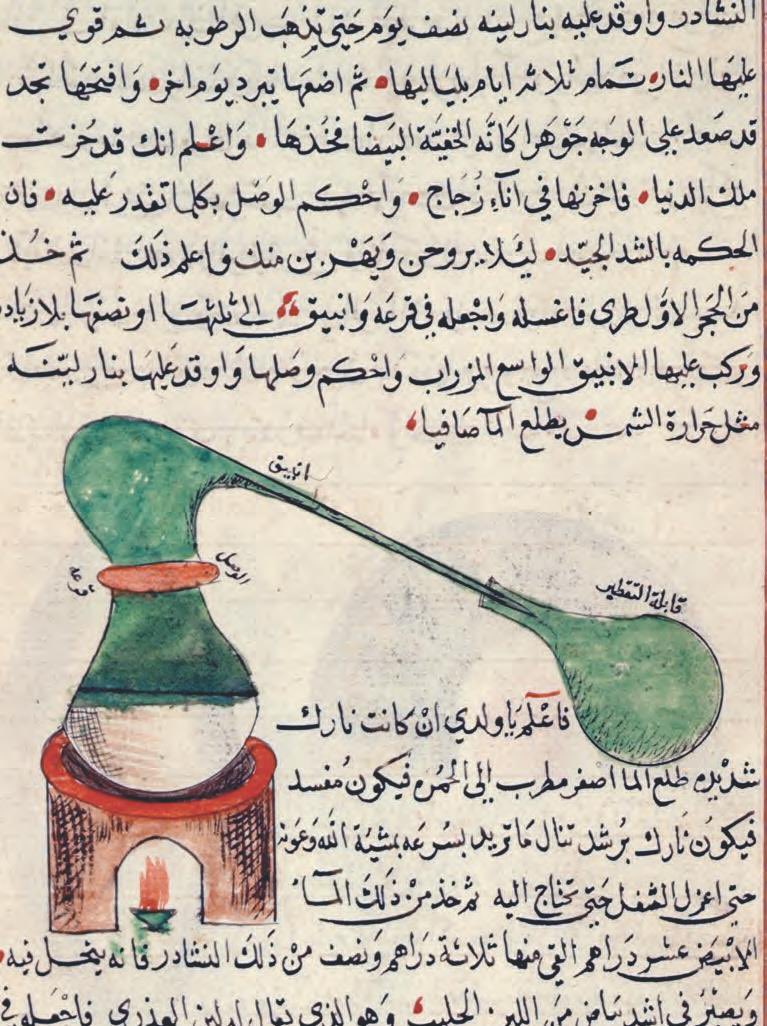 النشادر واوقد عليه بنار لينه نصف يوم حتى تذهب الرطوبه ثم قوي
عليها النار تمام ثلاثه ايام بلياليها ثم اضعها تبرد يوم اخر وافتحها تجد
قد صعد على الوجه جوهرا كانه الفضة البيضا فخذها واعلم انك قد حزت
ملك الدنيا فاخزنها في اناء زجاج واحكم الوصل بكلما تقدر عليه فان
الحكمه بالشد الجيد ليلا يروحن ويهربن منك فاعلم ذلك ثم خذ
من الحجر الاول طرى فاغسله واجعله في قرعه وانبيق الى ثلثها او نصفها بلا زياده
وركب عليها الانبيق الواسع المزراب واحكم وصلها واوقد عليها بنار لينه
مثل حرارة الشمس يطلع الما صافيا
انبيق
الوصل
قرعه
قابلة التقطير
فاعلم يا ولدي ان كانت نارك
شديده طلع الما اصفر مطرب الى الحمره فيكون مفسد
فيكون نارك برشد تنال ما تريد بسرعه بمشية الله وعونه
حتى اعزل الثفل حتى تحتاج اليه ثم خذ من ذلك الما
الابيض عشر دراهم القي منها ثلاثة دراهم ونصف من ذلك النشادر فانه ينحل فيه
ويصير في اشد بياض من اللبن الحليب وهو الذي يقال له لبن العذرى فاجعله في